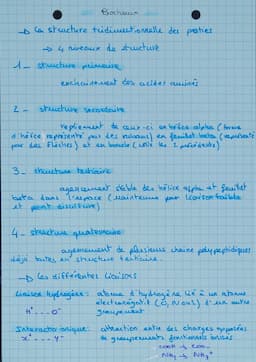 Biochimie
→ La structure tridimensionnelle des protéines
→ 4 niveaux de structure
1 - structure primaire
enchaînement des acides aminés
2 - structure secondaire
repliement de ceux-ci en hélice alpha (forme
d'hélice représenté par des rubans) en feuillet beta (représenté
par des flèches) et en boucle (relie les 2 précédents)
3 - structure tertiaire
agencement stable des hélice alpha et feuillet
beta dans l'espace (maintenue par liaison faible
et pont disulfure)
4 - structure quaternaire
agencement de plusieurs chaine polypeptidiques
déjà toutes en structure tertiaire.
→ Les différentes liaisons
Liaison hydrogène : atome d'hydrogène lié à un atome
électronégatif (O, N ou S) d'un autre
H⁺....O⁻ groupement
Interaction ionique : attraction entre des charges opposées
X⁺....Y⁻ de groupements fonctionnels ionisés
COOH → COO⁻
NH₂ → NH₃⁺